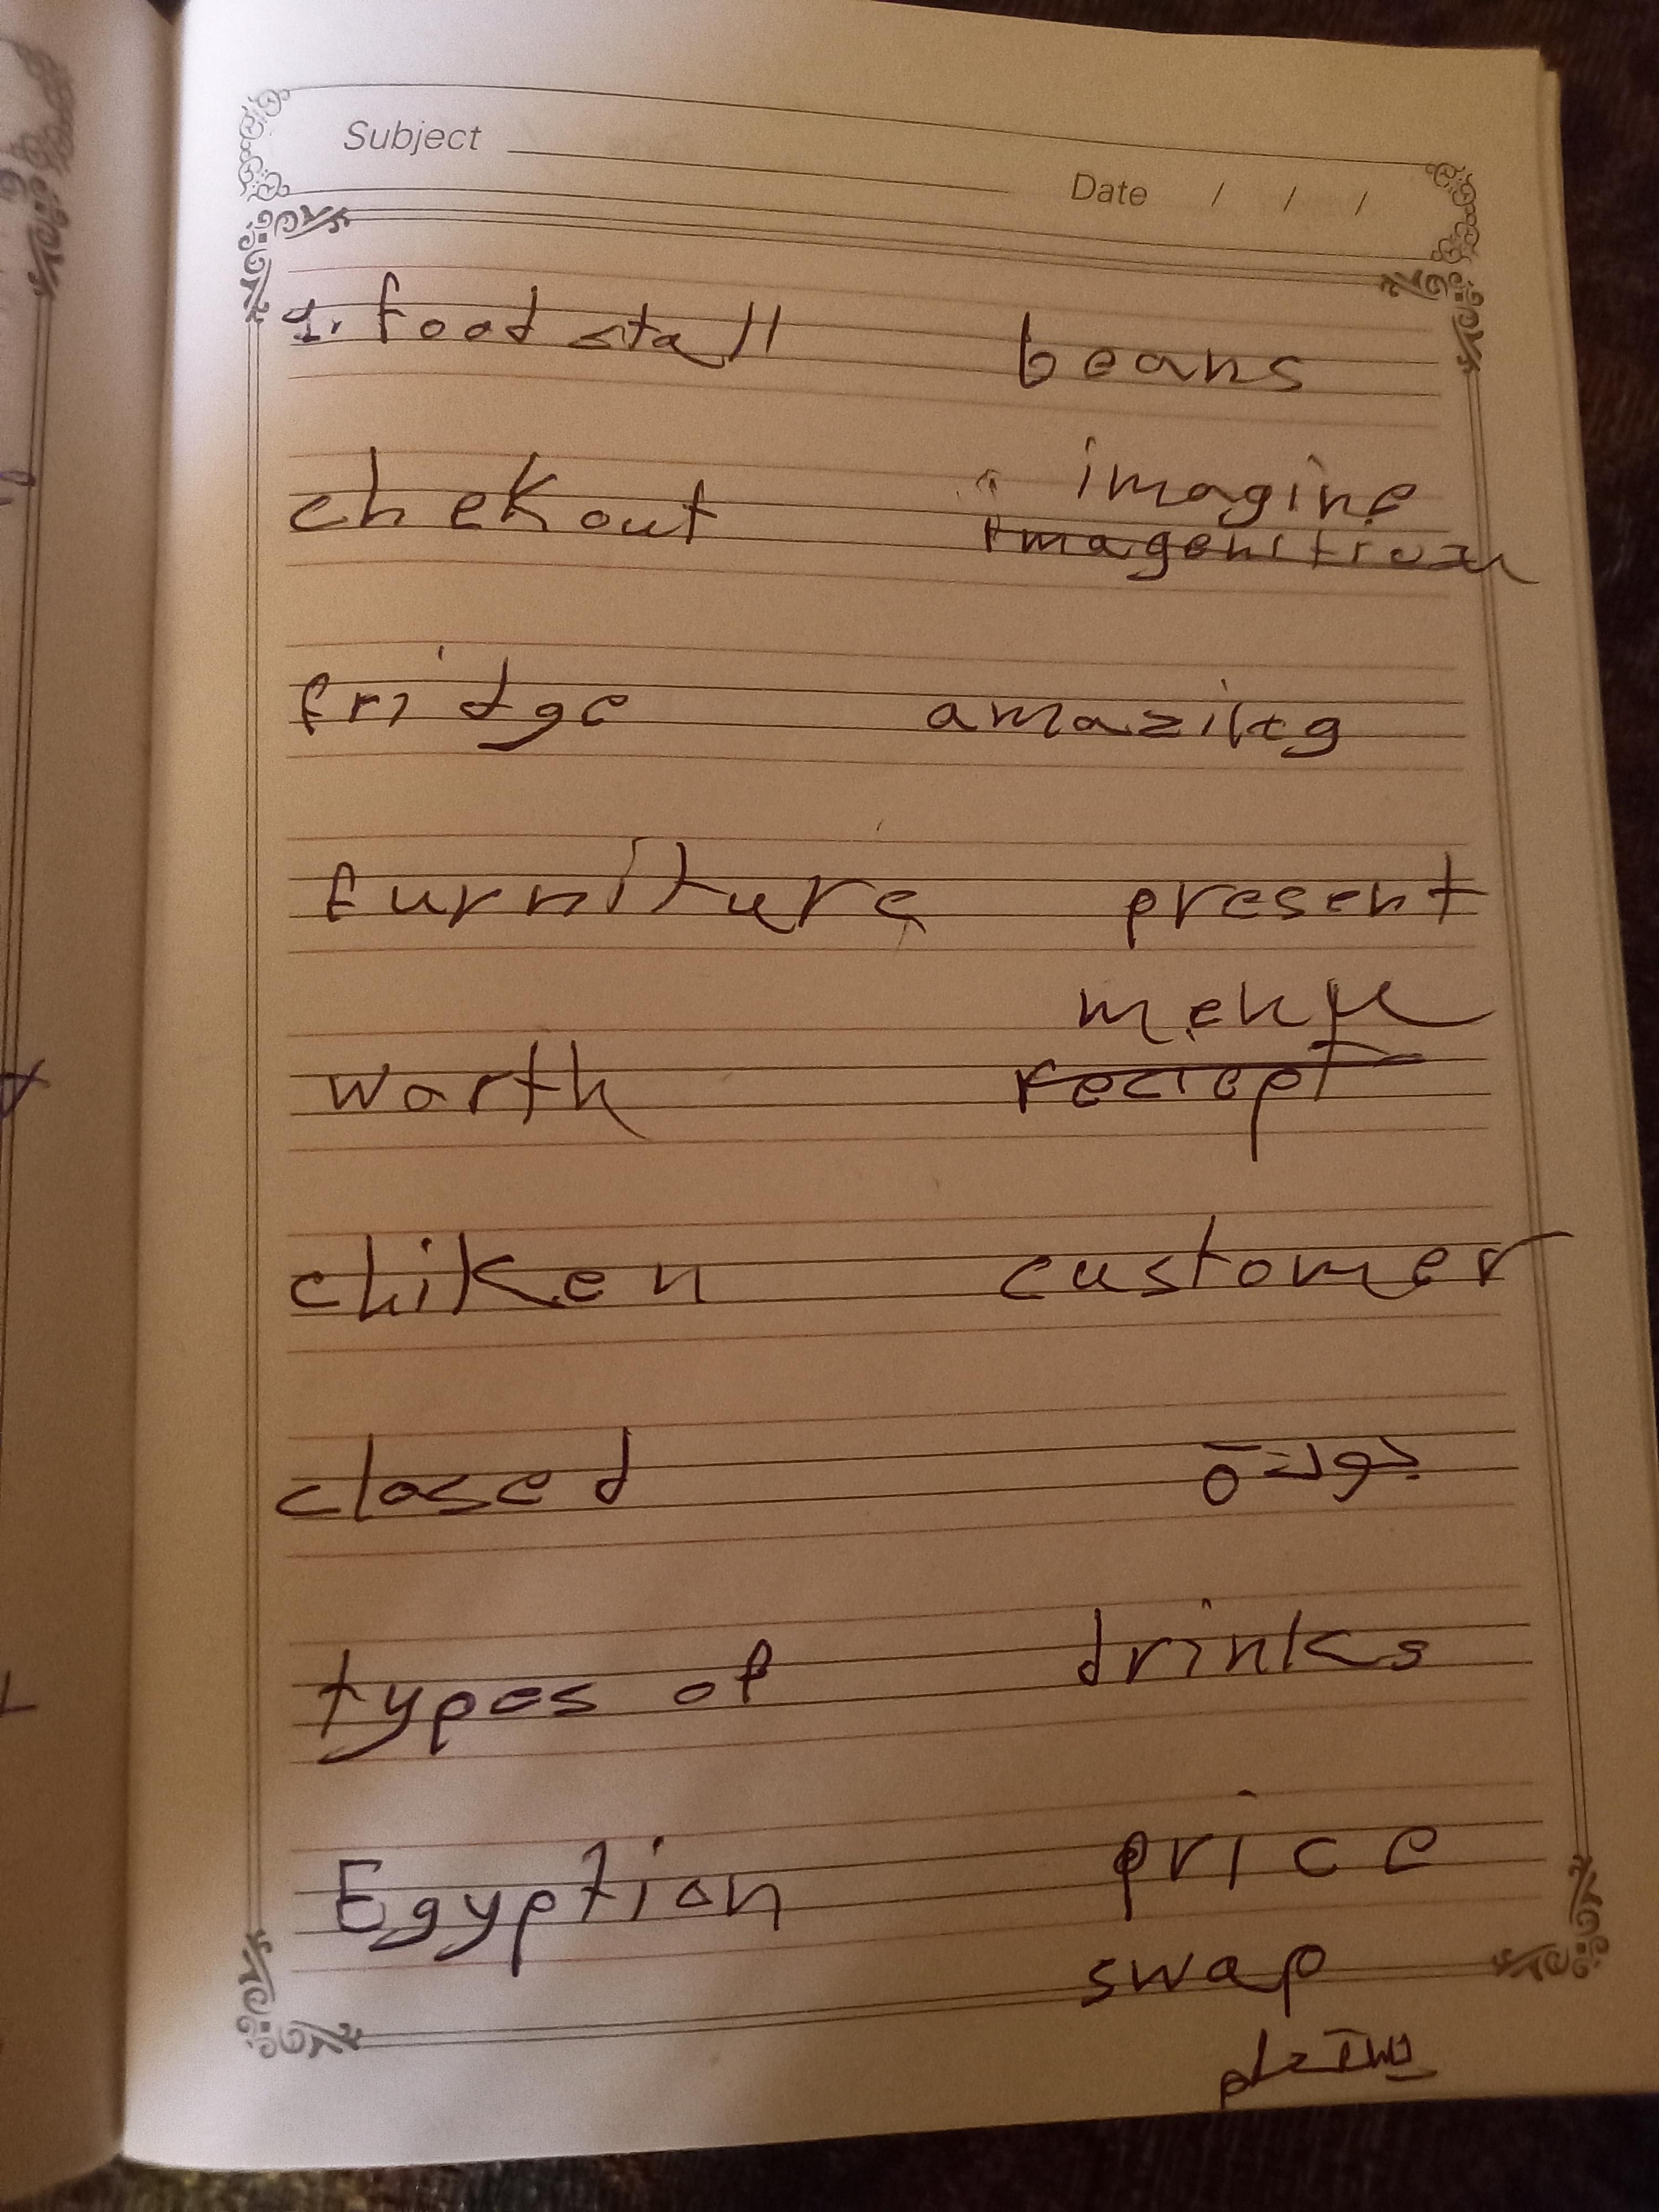 Subject Date / / /
1. food stall beans
chekout imagine
fridge amazing
furniture present
menu
worth reciept
chiken customer
closed جولة
types of drinks
Egyption price
swap